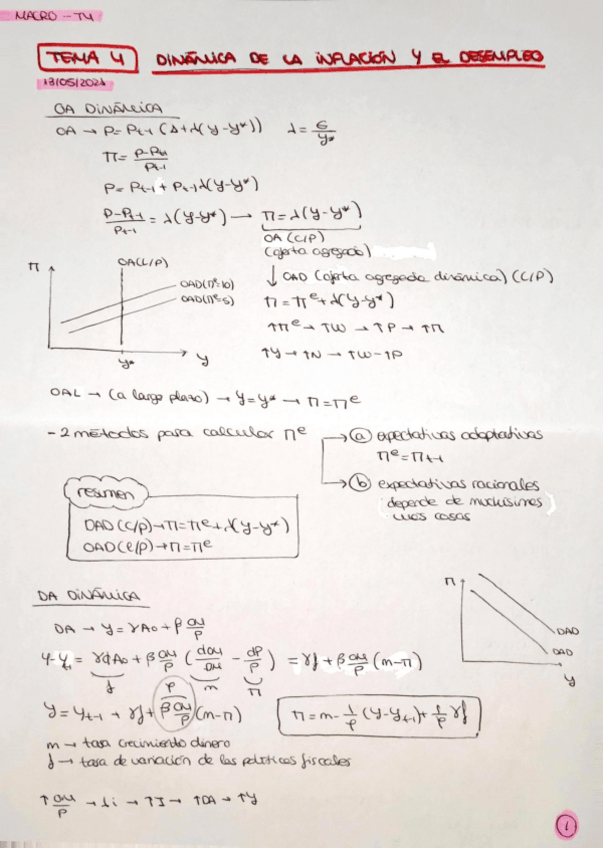 MACRO - T4
TEMA 4 DINÁMICA DE LA INFLACIÓN Y EL DESEMPLEO
13/05/2021
OA DINÁMICA
OA → P = Pt-1 (1+λ(y-y*)) λ = ε/y*
Π = P-Pt-1/Pt-1
P = Pt-1 + Pt-1 λ(y-y*)
P-Pt-1/Pt-1 = λ(y-y*) → Π = λ(y-y*)
OA (C/P)
(oferta agregada)
↓ OAD (oferta agregada dinámica) (C/P)
Π = Πe + λ(y-y*)
↑Πe → ↑W → ↑P → ↑Π
↑Y → ↑N → ↑W - ↑P
Π
OA(L/P)
OAD(Πe=10)
OAD(Πe=5)
y*
y
OAL → (a largo plazo) → y = y* → Π = Πe
- 2 métodos para calcular Πe
→ a) expectativas adaptativas
Πe = Πt-1
→ b) expectativas racionales
depende de muchísimes
cosas
resumen
OAD (C/P) → Π = Πe + λ(y-y*)
OAD (L/P) → Π = Πe
DA DINÁMICA
DA → y = γA0 + β OM/P
y - yt-1 = γdA0 + β OM/P (dOM/OM - dP/P) = γf + β OM/P (m-Π)
f m Π
φ
y = yt-1 + γf + β OM/P (m-Π)
Π = m - 1/φ (y-yt-1) + 1/φ γf
m → tasa crecimiento dinero
f → tasa de variación de las políticas fiscales
↑ OM/P → ↓i → ↑I → ↑DA → ↑Y
Π
DAD
DAD
y
1